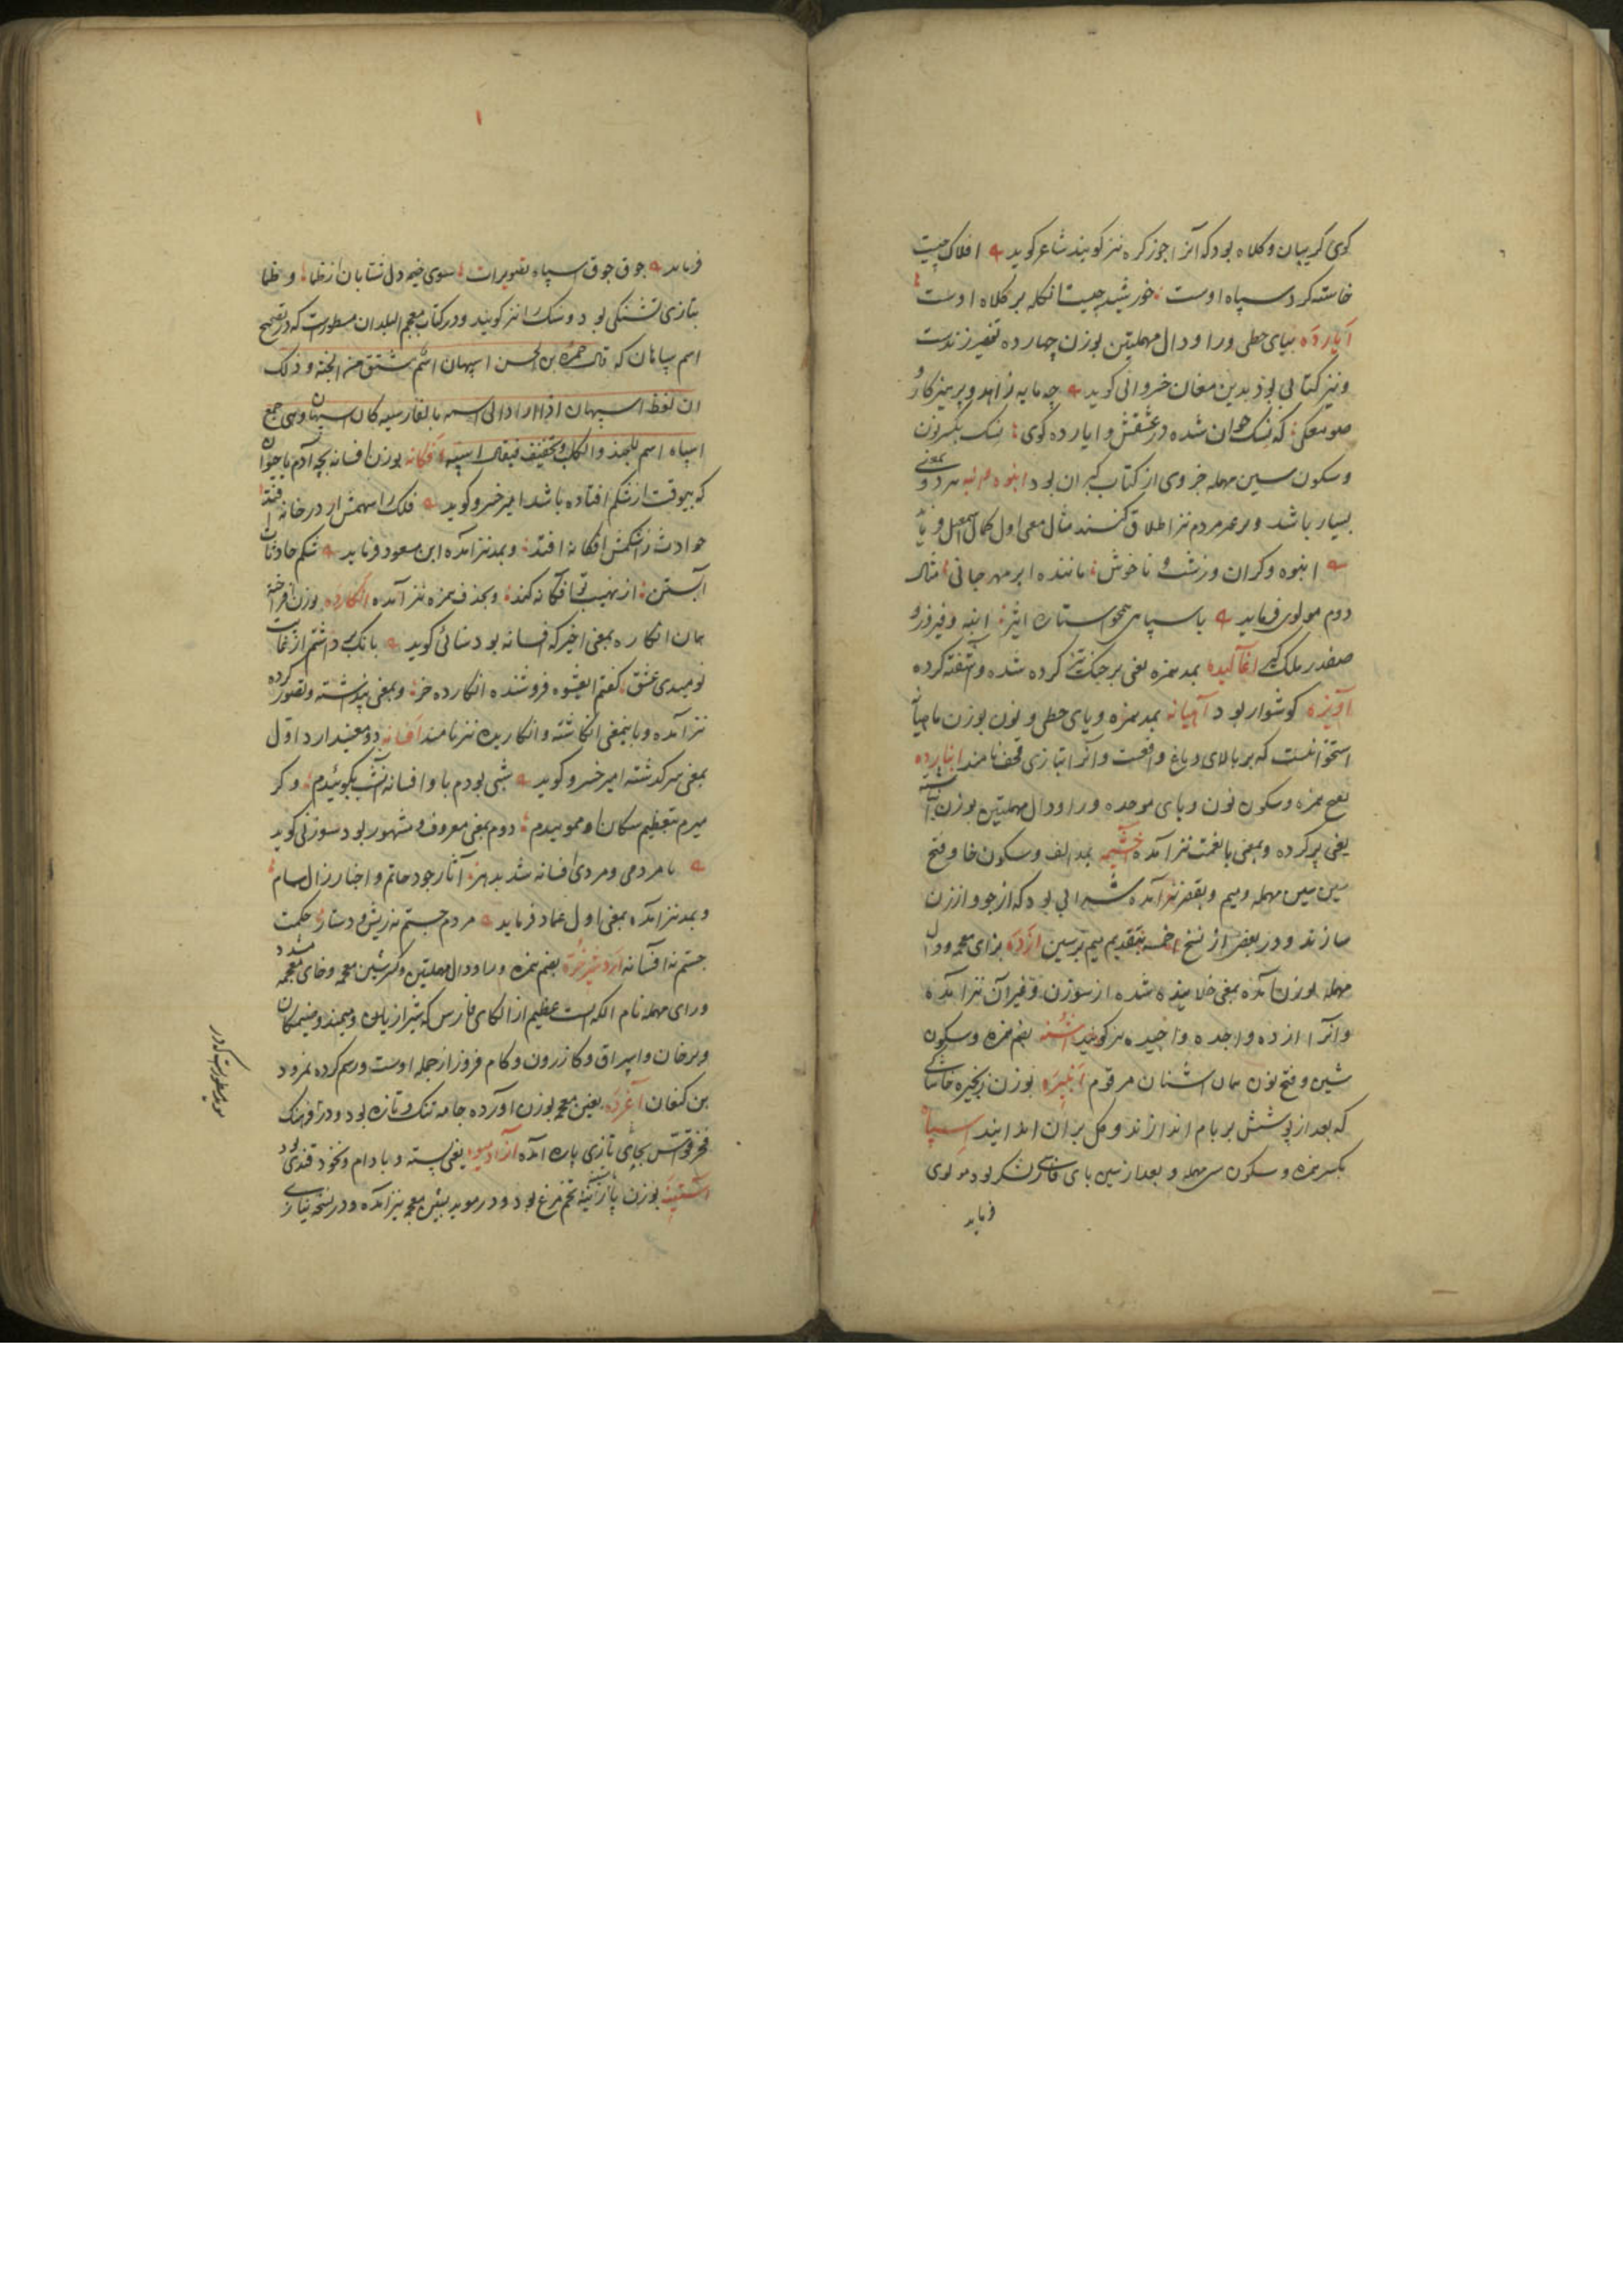 کوی کریبان و کلاه بود که آنرا جوز کره نیز کویند شاعر کوید افلاک چیست
خاسته کرد سپاه اوست خورشید چیست انکله بر کلاه اوست
ایارده بیای حطی و را و دال مهملتین بوزن چهارده تفسیر زندست
و نیز کتابی بود بدین مغان خسروانی کوید چه مایه زاهد و پرهیزکار
صومعکی که نسک خوان شده در عشقش و ایارده کوی نسک بکسر نون
و سکون سین مهمله جزوی از کتاب کبران بود انبوه
بسیار باشد و بر غیر مردم نیز اطلاق کنند مثال معنی اول کمال اسمعیل فرماید
انبوه و کران و زشت و ناخوش ماننده ابر مهرجانی مثال
دوم مولوی فرماید با سپاهی همچو استاره اثیر انبه و فیروز و
صفدر ملک کیر اغالیده بمد همزه یعنی بر جنک تیز کرده شده و آشفته کرده
آویزه کوشوار بود آهیانه بمد همزه و یای حطی و نون بوزن ماهیانه
استخوانست که بر بالای دماغ واقعست و آنرا بتازی قحف نامند انبارده
بفتح همزه و سکون نون و بای موحده و را و دال مهملتین بوزن
یعنی پر کرده و بمعنی با نعمت نیز آمده اخسمه بمد الف و سکون خا و فتح
سین مهمله و میم و بقصر نیز آمده شرابی بود که از جو و ارزن
سازند و در بعضی از نسخ اخمسه بتقدیم میم بر سین آزده بزای معجمه و دال
مهمله بوزن آمده بمعنی خلانیده شده از سوزن و غیر آن نیز آمده
و آنرا آزده و آجده و آجیده نیز کویند اشنه بضم همزه و سکون
شین و فتح نون همان اشنان مرقوم انبیره بوزن زنجیره خاشاکی
که بعد از پوشش بر بام اندازند و کل بر آن اندایند اسپاه
بکسر همزه و سکون سین مهمله و بعد از سین بای فارسی لشکر بود مولوی
فرماید
فرماید جوق جوق سپاه تصویرات سوی چشمه دل شتابان از ظما و ظما
بتازی تشنکی بود و سک را نیز کویند و در کتاب معجم البلدان مسطورست که در تصحیح
اسم سپاهان که قال حمزه بن الحسن اسپهان اسم مشتق من الجندیه و ذلک
ان لفظ اسپهان اذا رد الی اسمه بالفارسیه کان اسپاهان و هی جمع
اسپاه اسم للجند و الکلب و تخفیف فیقال اسپه افکانه بوزن افسانه بچه آدم یا حیوان
که بیوقت از شکم افتاده باشد امیر خسرو کوید فلک را سهمش ار در خانه افتد
حوادث را شکمش افکانه افتد و بمد نیز آمده ابن مسعود فرماید شکم حادثات
آبستن از نهیب تو آفکانه کند و بحذف همزه نیز آمده انکارده بوزن افراخته
همان انکاره بمعنی اخیر که افسانه بود سنائی کوید بانک برداشتم از غایت
نومیدی عشق کفتم ای عشوه فروشنده انکارده خر و بمعنی پنداشته و تصور کرده
نیز آمده و باینمعنی انکاشته و انکاریده نیز نامند افسانه دو معنی دارد اول
بمعنی سرکذشته امیر خسرو کوید شبی بودم با و افسانه امشب بکوئیدم و کر
میرم بتعظیم سکان او مموئیدم دوم بمعنی معروف و مشهور بود سوزنی کوید
با مردمی و مردی افسانه شد بدهر آثار جود حاتم و اخبار زال سام
و بمد نیز آمده بمعنی اول عماد فرماید مردم چشم نه ریش و دستار حکمت
جستم نه آفسانه اردشیر خره بضم همزه و را و دال مهملتین و کسر شین معجمه و خای معجمه مشدد
و رای مهمله نام الکه است عظیم از الکای فارس که شیراز و میمند و سیمکان
و برخان و سیراف و کازرون و کام فیروز از جمله اوست و رسم کرده نمرود
بن کنعان آغرده بغین معجمه بوزن آورده جامه تنک و تازه بود و در فرهنک
فخر قواس بجای تازی پاره آمده آزاد میوه یعنی پسته و بادام و نخود قندی بود
اشتینه بوزن تخم مرغ بود و در موید بشین معجمه نیز آمده و در نسخه نیازی